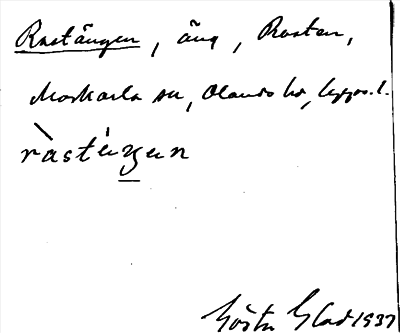 Rastängen, äng, Rasten,
Morkarla sn, Olands hd, Upps. l.
ràstéŋen
Gösta Glad 1937